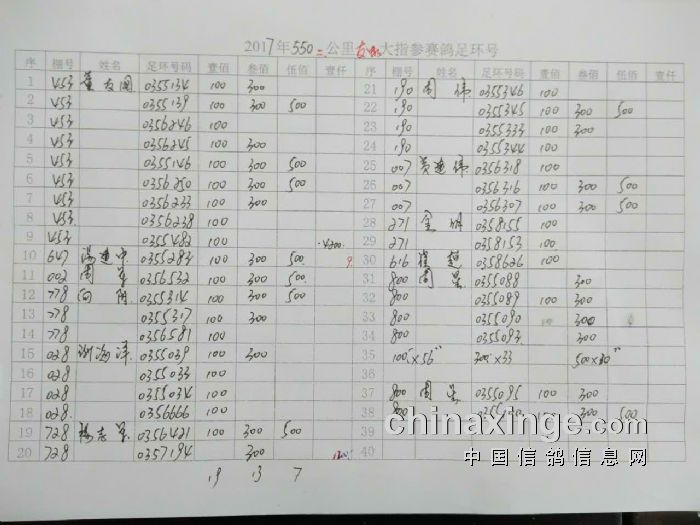 2017年550二公里 大指参赛鸽足环号
序 棚号 姓名 足环号码 壹佰 叁佰 伍佰 壹仟 序 棚号 姓名 足环号码 壹佰 叁佰 伍佰 壹仟
1 453 董友国 0355134 100 300 21 190 周伟 0355346 100
2 453 0355139 100 300 500 22 190 0355345 100 300 500
3 453 0356246 100 23 190 0355333 100 300
4 453 0356245 100 300 24 190 0355344 100
5 453 0355146 100 300 500 25 007 黄建伟 0356318 100
6 453 0356250 100 300 500 26 007 0356316 100 300 500
7 453 0356233 100 300 27 007 0356307 100 300 500
8 453 0356238 100 28 271 金明 0358155 100
9 453 0355482 100 4200 29 271 0358153 100
10 647 汤建中 0355283 100 300 500 9 30 616 崔超 0358626 100
11 002 周军 0356532 100 300 500 31 800 周 0355088 300
12 778 向阳 0355314 100 300 500 32 800 0355089 100 300
13 778 0355317 100 300 33 800 0355090 100 300
14 778 0356581 100 34 800 0355093 300
15 028 海洋 0355039 100 300 35 100"×56" 300"×33 500×20"
16 028 0355033 100
17 028 0355034 100 37 800 周 0355095 100 300
18 028 0356666 100 38 800 300 500
19 728 杨志军 0356421 100 300 500 39
20 728 0357194 300 40
19 13 7
chinaxinge.com
中国信鸽信息网